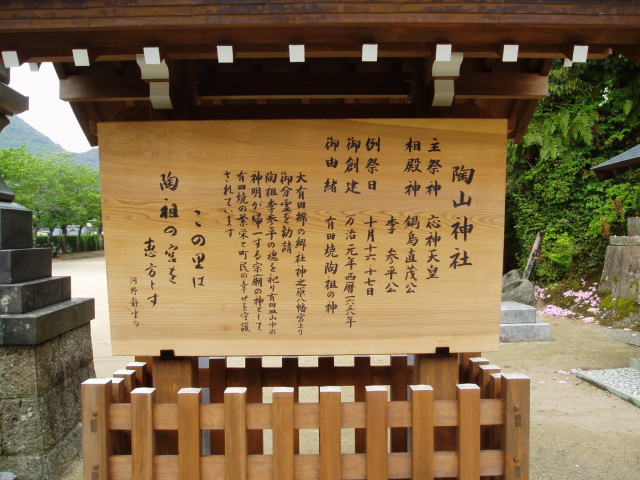 陶山神社
主祭神 応神天皇
相殿神 鍋島直茂公
李参平公
例祭日 十月十六・十七日
御創建 万治元年西暦一六五八年
御由緒 有田焼陶祖の神
大有田郷の郷社神之原八幡宮より
御分霊を勧請
陶祖李参平の魂を祀り有田皿山中の
神明が帰一する宗廟の神として
有田焼の繁栄と町民の幸せを守護
されています
この里は
陶祖の宮を
恵方とす
河野静雲